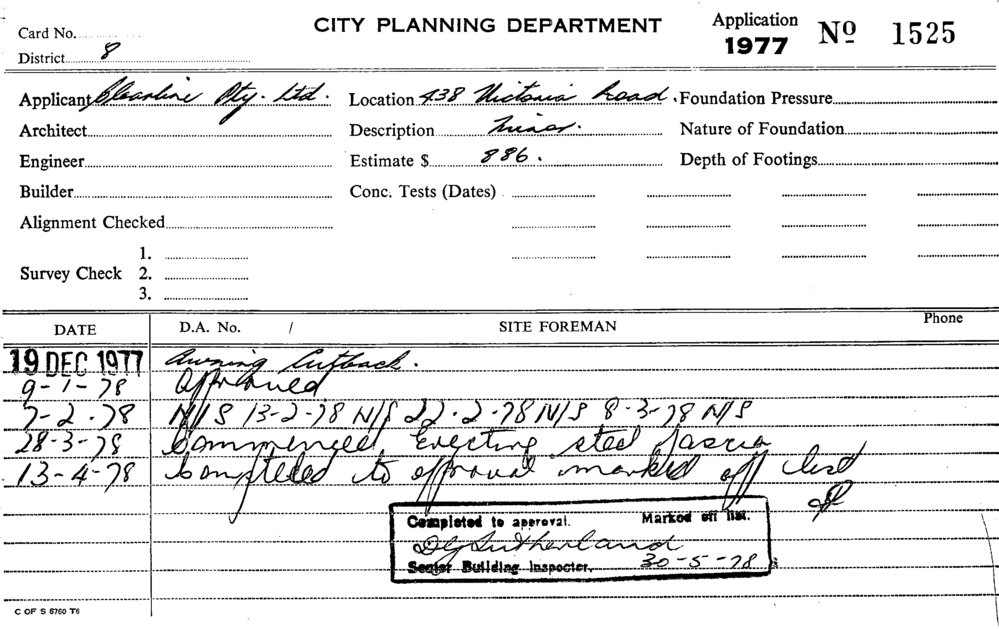 CITY PLANNING DEPARTMENT
Application 1977 Nº 1525
Card No.
District 8
Applicant Cleanline Pty. Ltd.
Location 438 Victoria Road.
Foundation Pressure
Architect
Description Minor.
Nature of Foundation
Engineer
Estimate $ 886.
Depth of Footings
Builder
Conc. Tests (Dates)
Alignment Checked
Survey Check 1.
2.
3.
DATE D.A. No. / SITE FOREMAN Phone
19 DEC 1977 Awning Cutback.
9-1-78 Approved
7-2-78 N/S 13-2-78 N/S 22-2-78 N/S 8-3-78 N/S
28-3-78 Commenced Erecting steel fascia
13-4-78 Completed to approval marked off list
Completed to approval. Marked off list.
DG Sutherland
Senior Building Inspector. 30-5-78
C OF S 8760 T6